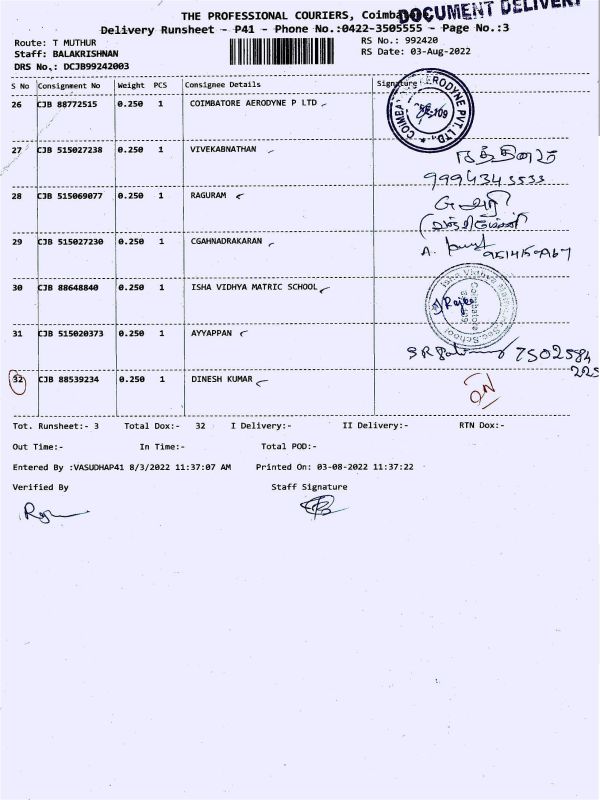 THE PROFESSIONAL COURIERS, Coimba
DOCUMENT DELIVERY
Delivery Runsheet - P41 - Phone No.:0422-3505555 - Page No.:3
Route: T MUTHUR
RS No.: 992420
Staff: BALAKRISHNAN
RS Date: 03-Aug-2022
DRS No.: DCJB99242003
S No Consignment No Weight PCS Consignee Details Signature
26 CJB 88772515 0.250 1 COIMBATORE AERODYNE P LTD
27 CJB 515027238 0.250 1 VIVEKABNATHAN
9994343533
28 CJB 515069077 0.250 1 RAGURAM
29 CJB 515027230 0.250 1 CGAHNADRAKARAN
A.
30 CJB 88648840 0.250 1 ISHA VIDHYA MATRIC SCHOOL
31 CJB 515020373 0.250 1 AYYAPPAN
7502584
225
32 CJB 88539234 0.250 1 DINESH KUMAR
Tot. Runsheet:- 3 Total Dox:- 32 I Delivery:- II Delivery:- RTN Dox:-
Out Time:- In Time:- Total POD:-
Entered By :VASUDHAP41 8/3/2022 11:37:07 AM Printed On: 03-08-2022 11:37:22
Verified By Staff Signature